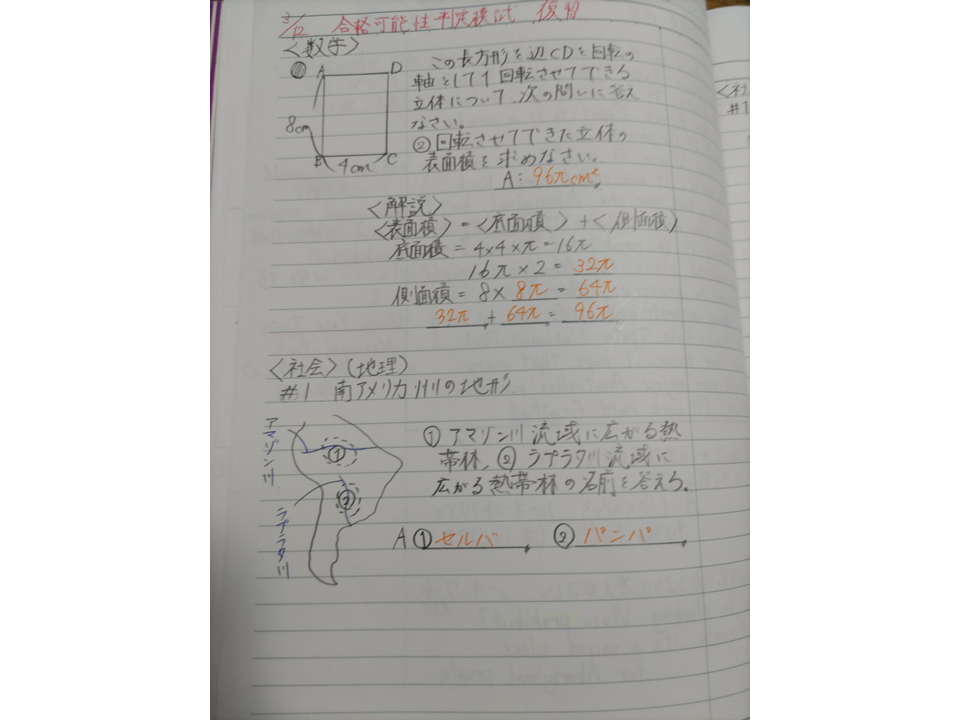 3/12 合格可能性判定模試 復習
<数学>
A D
8cm
B 4cm C
この長方形を辺CDを回転の
軸として1回転させてできる
立体について、次の問いに答え
なさい。
② 回転させてできた立体の
表面積を求めなさい。
A: 96πcm²
<解説>
<表面積> = <底面積> + <側面積>
底面積 = 4×4×π = 16π
16π×2 = 32π
側面積 = 8× 8π = 64π
32π + 64π = 96π
<社会> (地理)
#1 南アメリカ州の地形
アマゾン川
ラプラタ川
① ②
① アマゾン川流域に広がる熱
帯林、② ラプラタ川流域に
広がる熱帯林の名前を答えろ。
A ① セルバ ② パンパ
<社会
#1